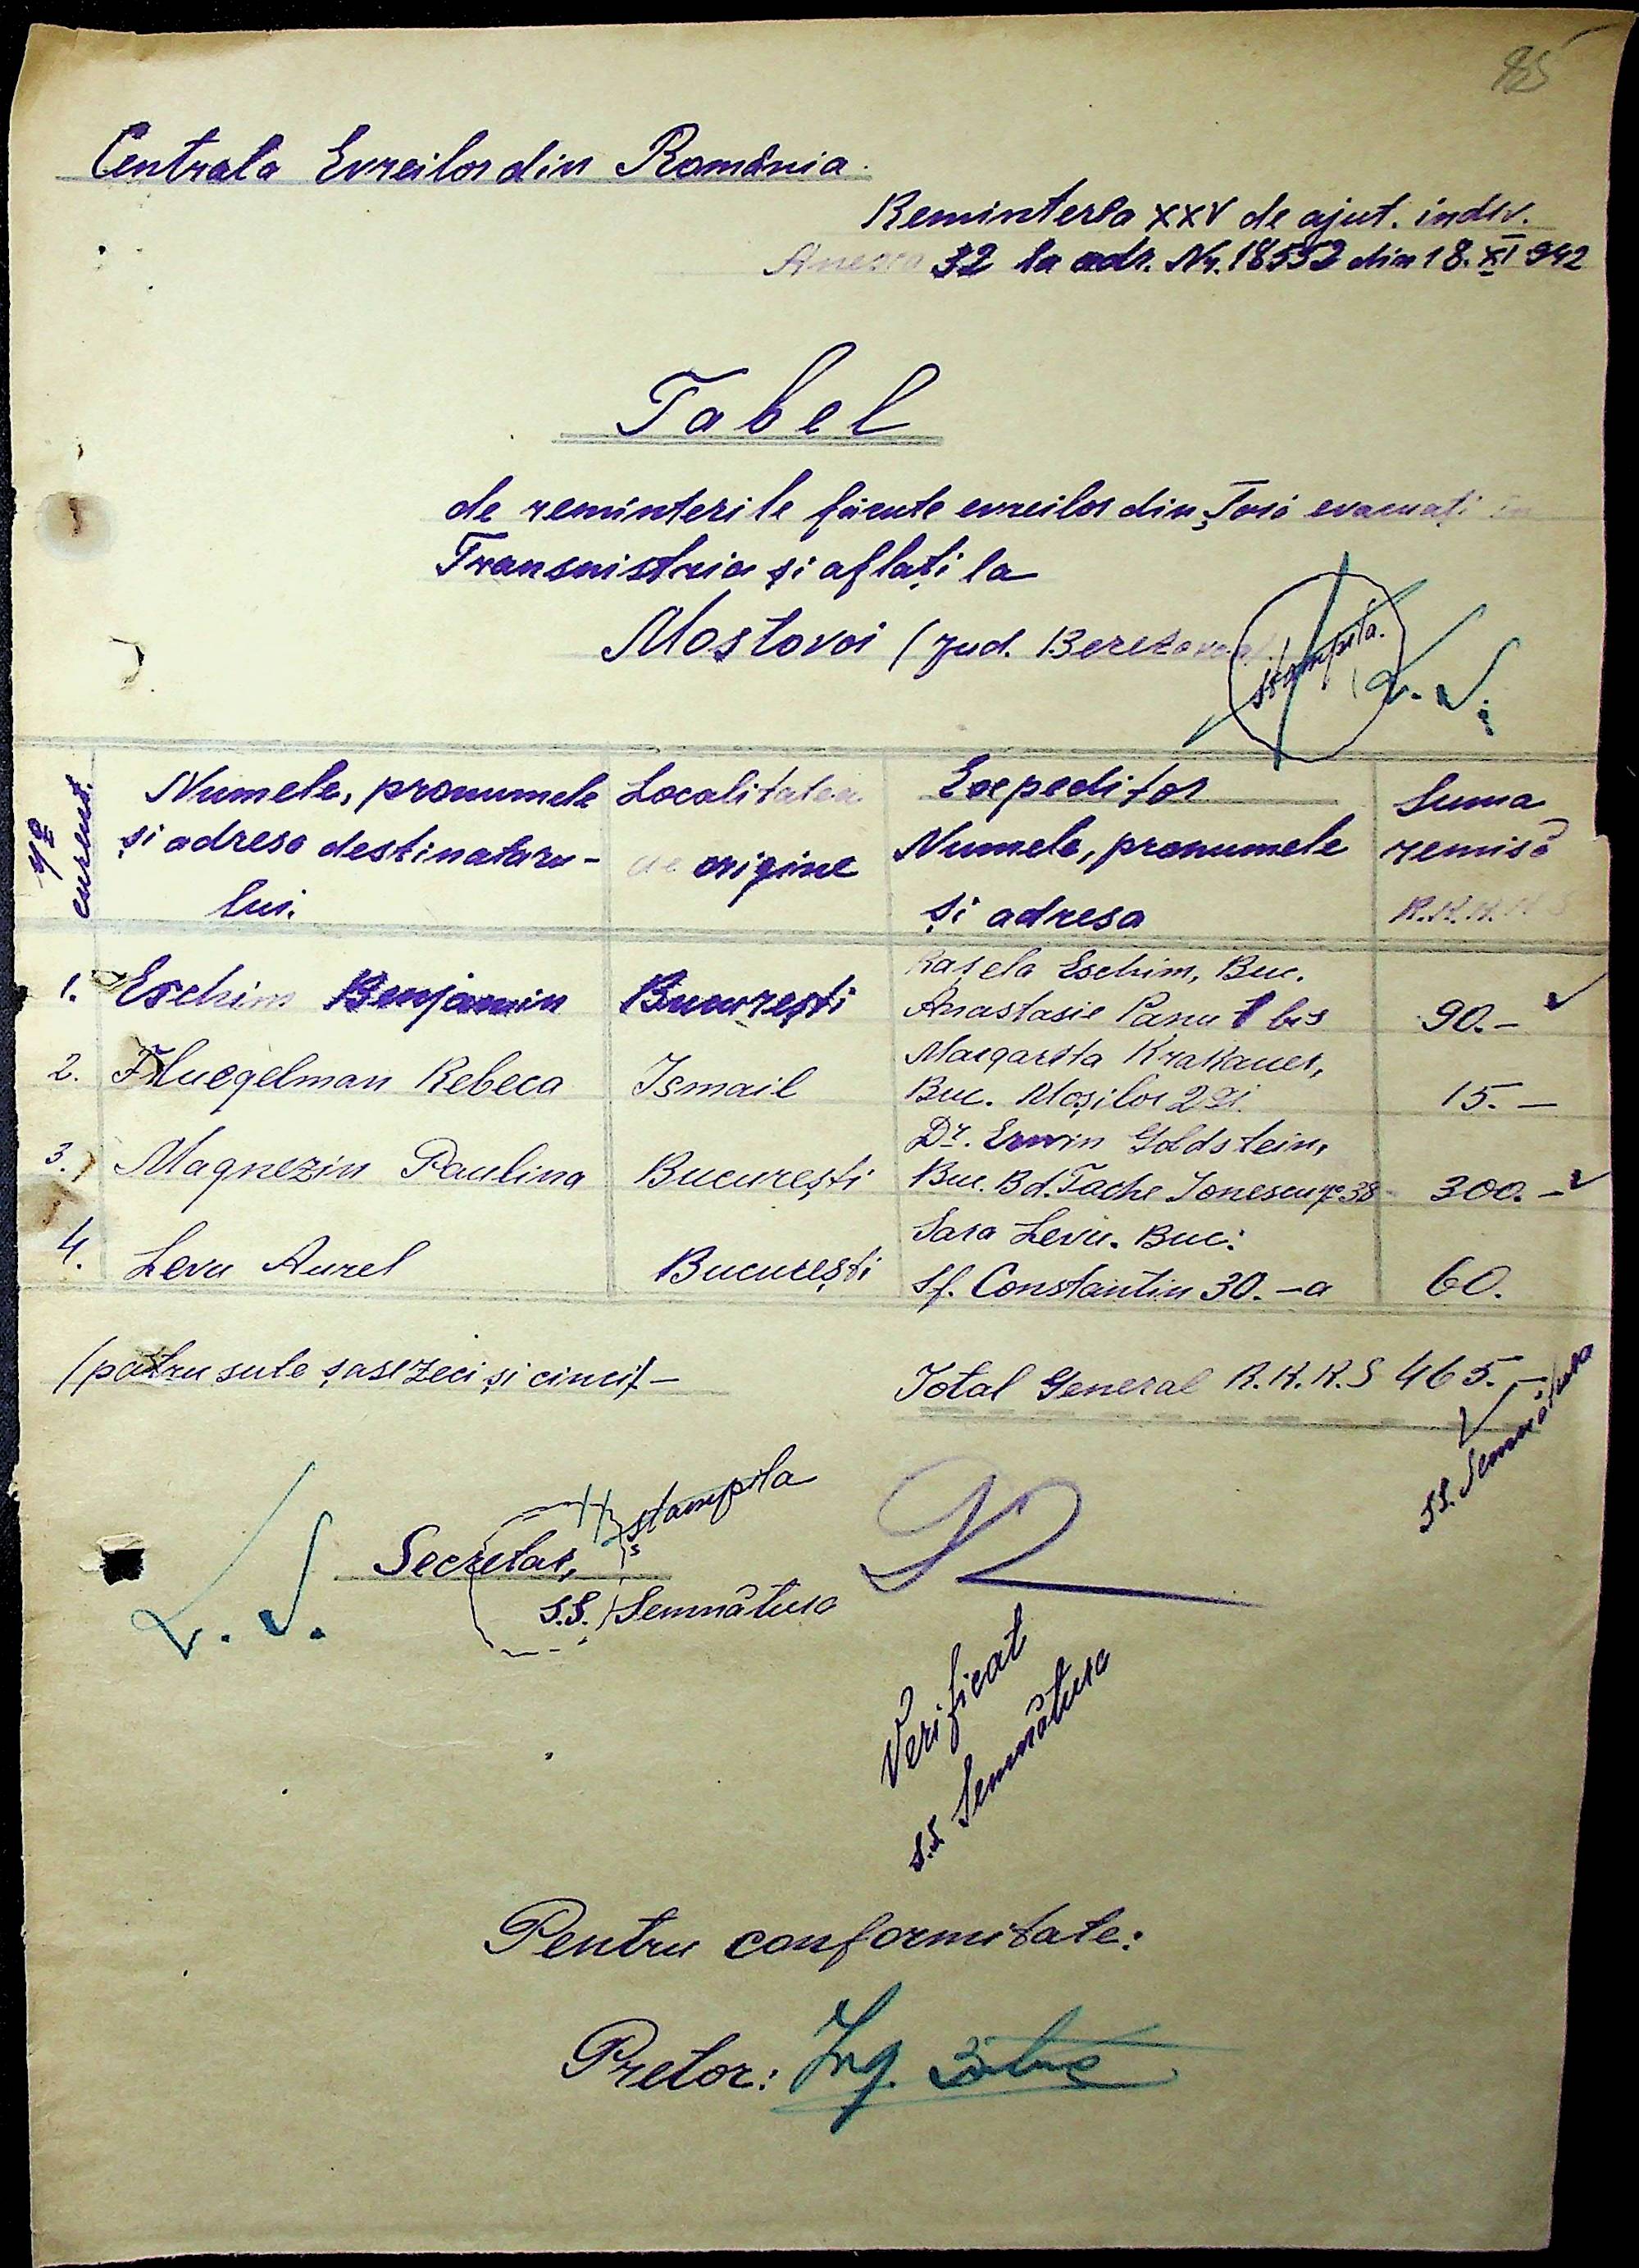 85
Centrala Evreilor din România.
Remiterea XXV de ajut. indiv.
Anexa 32 la adr. Nr. 18552 din 18. XI 942
Tabel
de remiterile făcute evreilor din Țară evacuați în
Transnistria și aflați la
Mostovoi (Jud. Berezovca)
stampila.
L. S.
No curent.
Numele, pronumele
și adresa destinataru-
lui.
Localitatea
de origine
Expeditor
Numele, pronumele
și adresa
Suma
remisă
R.K.K.S
1. Eschim Benjamin București Rașela Eschim, Buc.
Anastasie Panu 1 bis 90.-
2. Fluegelman Rebeca Ismail Margareta Krakauer,
Buc. Moșilor 15.-
3. Magnezin Paulina București Dr. Erwin Goldstein,
Buc. Bd. Tache Ionescu No 38 300.-
4. Levu Aurel București Sara Levu. Buc:
Sf. Constantin 30.-a 60.
(patru sute șasezeci și cinci)-
Total General R.K.K.S 465.-
ss. Semnătura
L. S.
Secretar,
stampila
s.s. Semnătura
Verificat
s.s. Semnătura
Pentru conformitate:
Pretor: Ing.